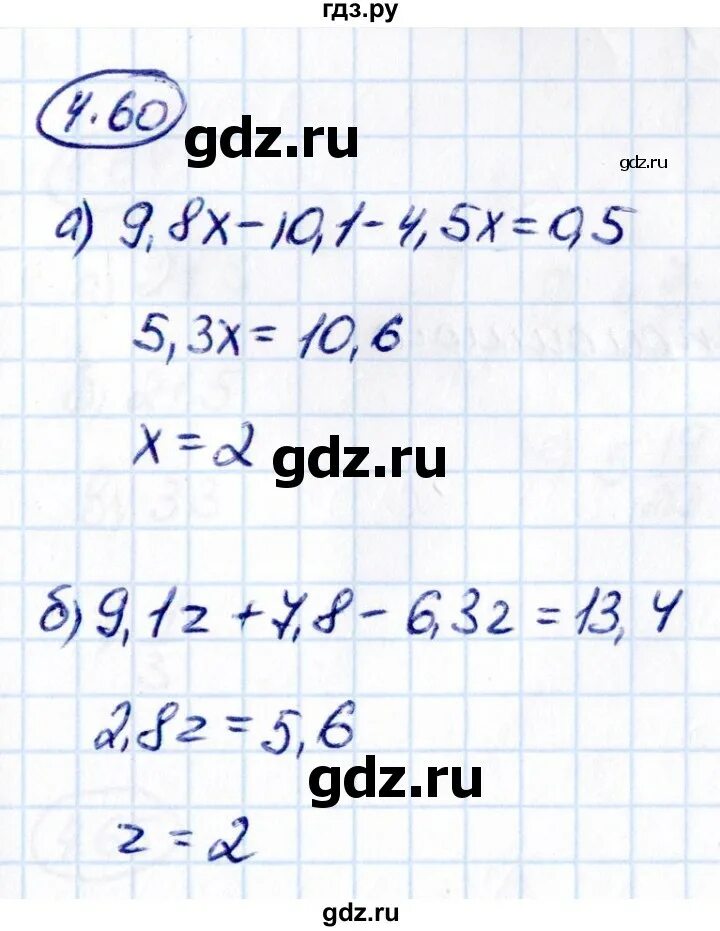 гдз.ру
4.60
gdz.ru
gdz.ru
а) 9,8x-10,1-4,5x=0,5
5,3x=10,6
x=2
gdz.ru
б) 9,1z+7,8-6,3z=13,4
2,8z=5,6
gdz.ru
z=2
gdz.ru